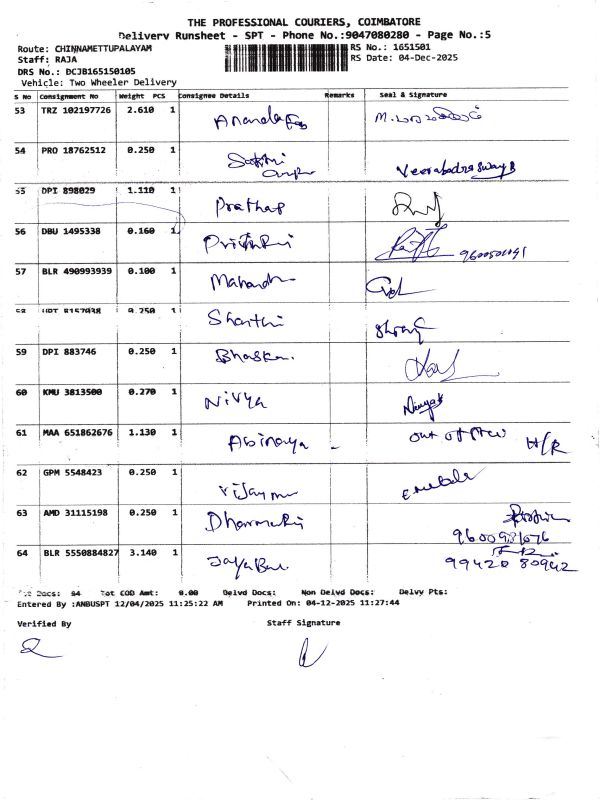 THE PROFESSIONAL COURIERS, COIMBATORE
Delivery Runsheet - SPT - Phone No.:9047080280 - Page No.:5
Route: CHINNAMETTUPALAYAM RS No.: 1651501
Staff: RAJA RS Date: 04-Dec-2025
DRS No.: DCJB165150105
Vehicle: Two Wheeler Delivery
S No Consignment No Weight PCS Consignee Details Remarks Seal & Signature
53 TRZ 102197726 2.610 1
54 PRO 18762512 0.250 1 Veerabadraswamy
55 DPI 898029 1.110 1 Prathap
56 DBU 1495338 0.160 1
57 BLR 490993939 0.100 1
58 0.250 1 Sharthi
59 DPI 883746 0.250 1 Bhaskar.
60 KMU 3813500 0.270 1 Nivya
61 MAA 651862676 1.130 1 Abinaya - out of H/R
62 GPM 5548423 0.250 1
63 AMD 31115198 0.250 1
64 BLR 5550884827 3.140 1 99420 80942
Tot Docs: 64 Tot COD Amt: 0.00 Delvd Docs: Non Delvd Docs: Delvy Pts:
Entered By :ANBUSPT 12/04/2025 11:25:22 AM Printed On: 04-12-2025 11:27:44
Verified By Staff Signature